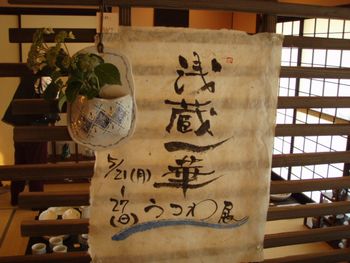 浅蔵一華
5/21(月)
～
27(日)
うつわ展